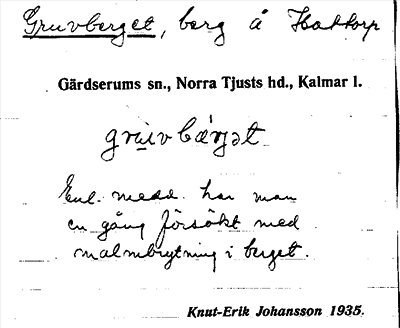 Gruvberget, berg å Hattorp
Gärdserums sn., Norra Tjusts hd., Kalmar l.
Enl. medd. har man
en gång försökt med
malmbrytning i berget.
Knut-Erik Johansson 1935.